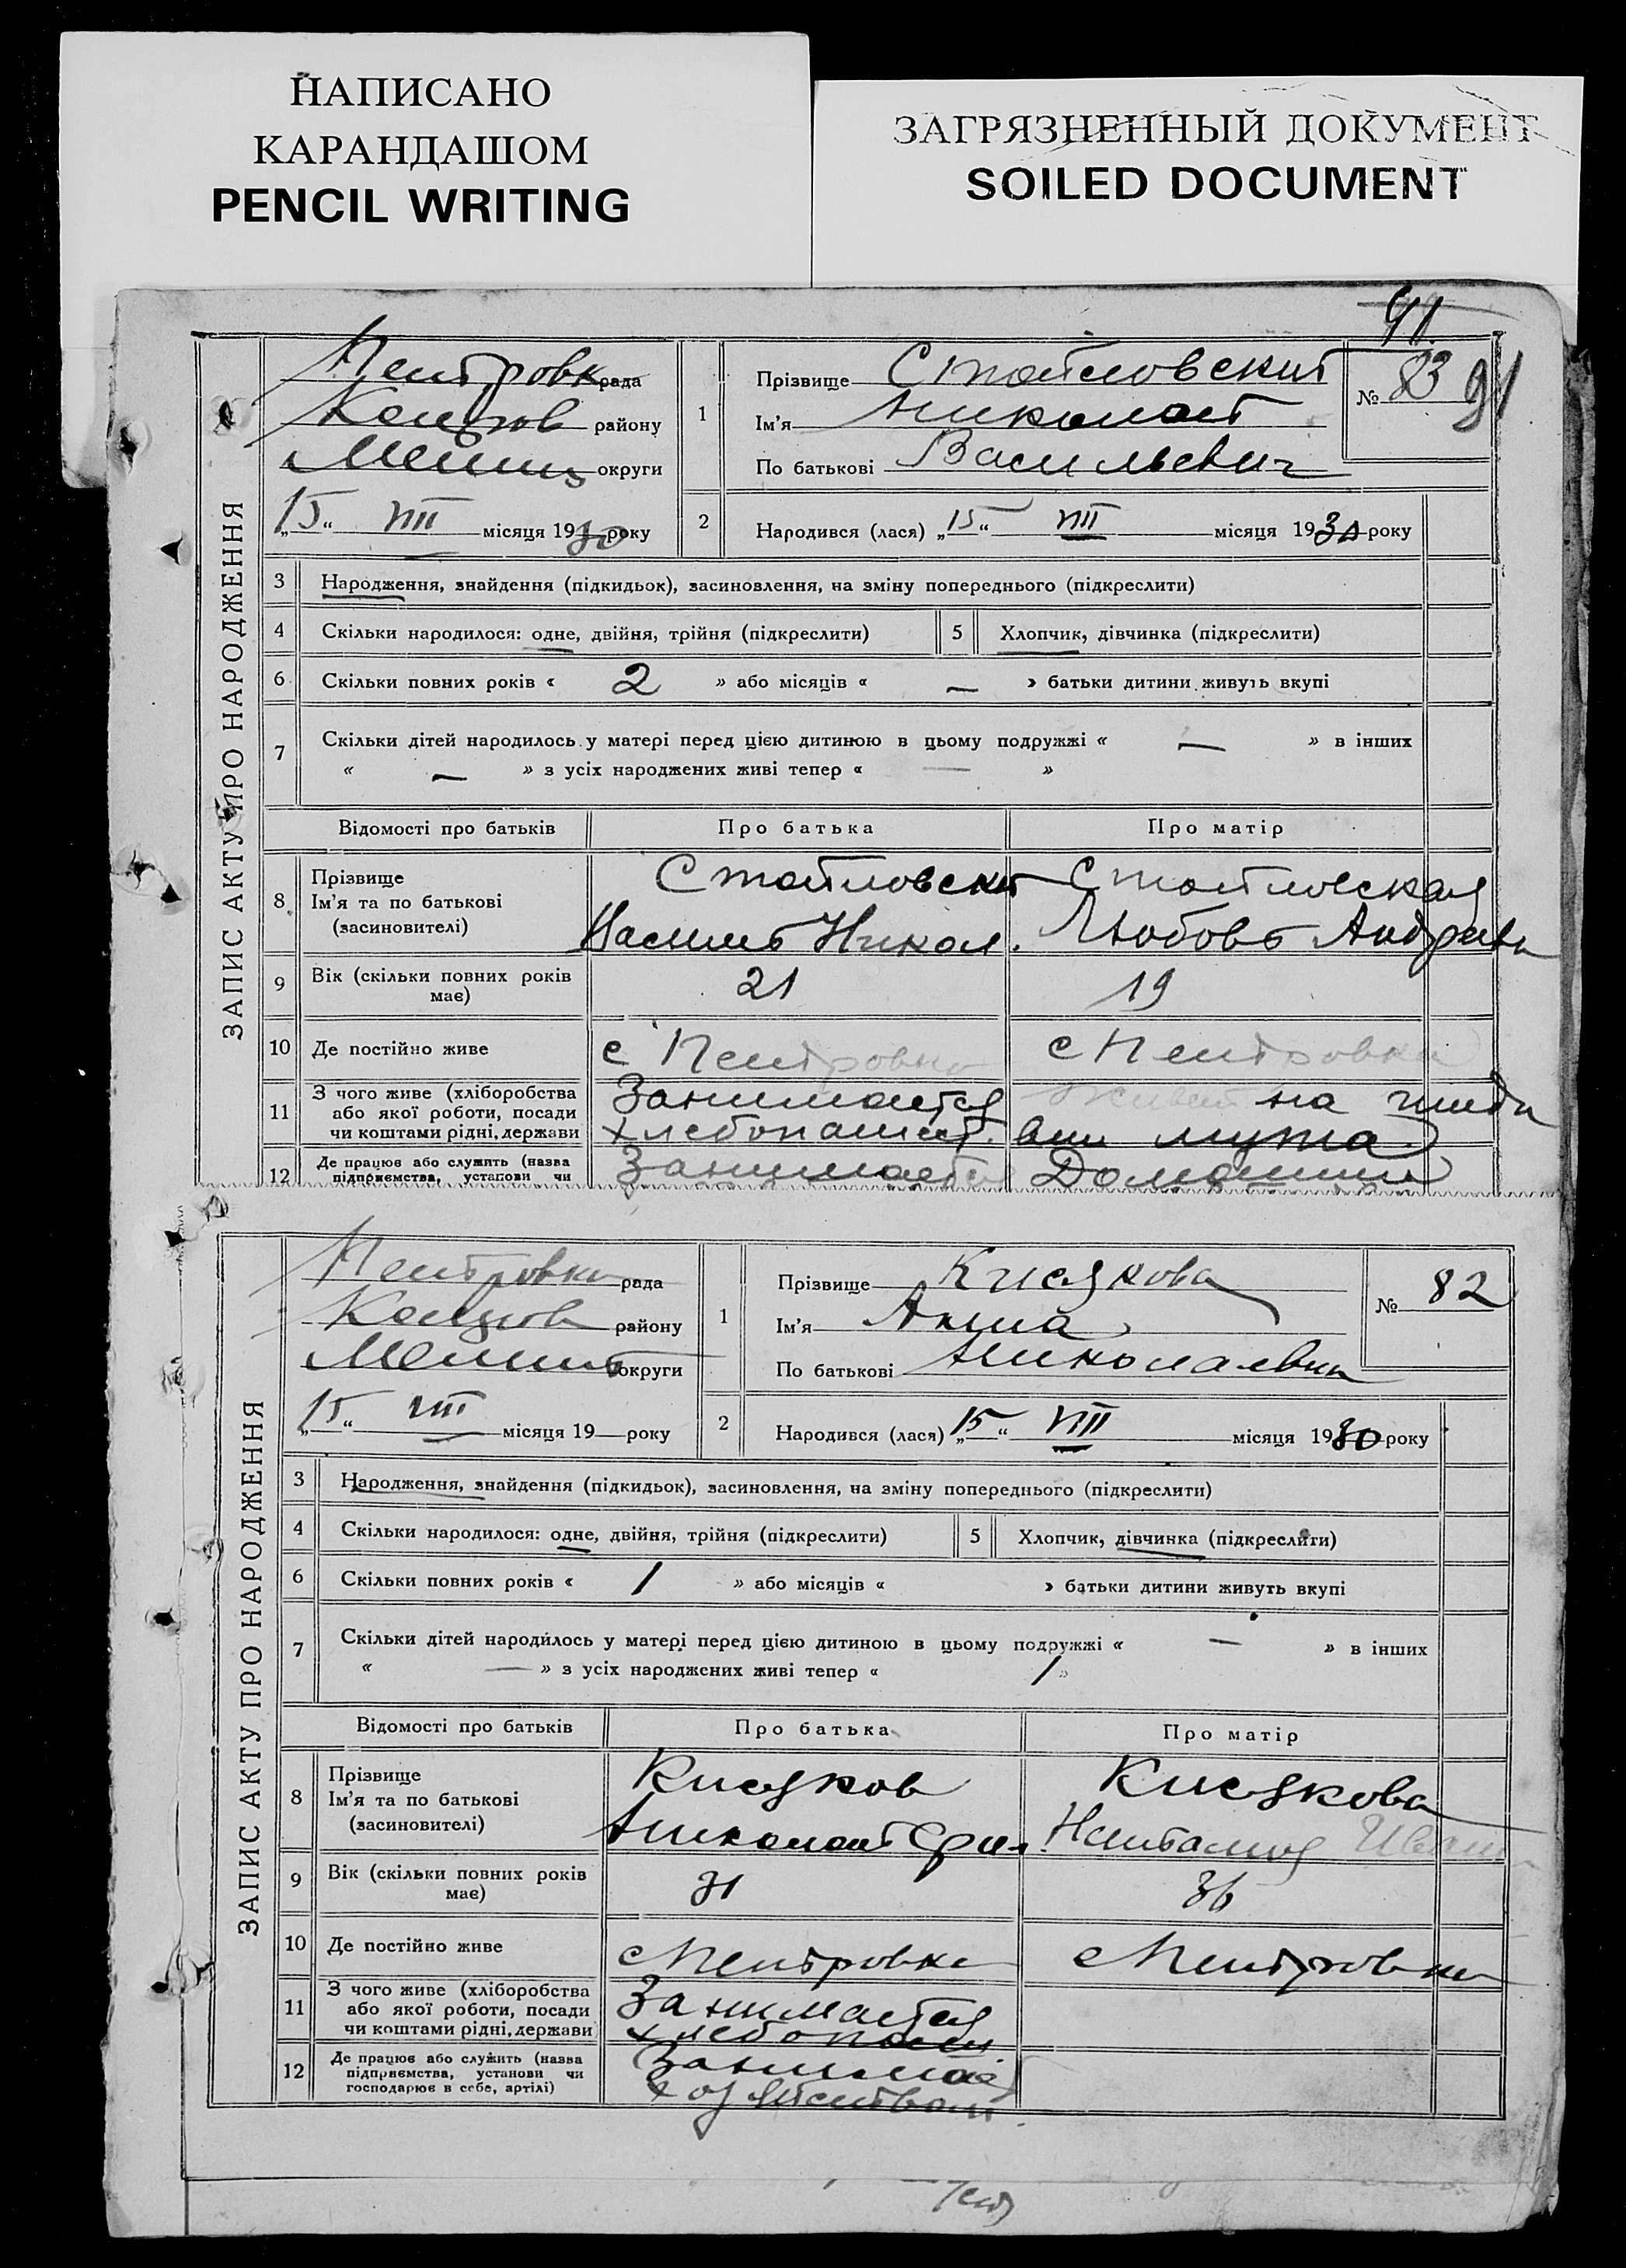 НАПИСАНО
КАРАНДАШОМ
PENCIL WRITING
ЗАГРЯЗНЕННЫЙ ДОКУМЕНТ
SOILED DOCUMENT
91
ЗАПИС АКТУ ПРО НАРОДЖЕННЯ
рада
району
округи
„15“ VIII місяця 1930 року
1
Прізвище
Ім'я Николай
По батькові Васильевич
№ 83 91
2
Народився (лася) „15“ VIII місяця 1930 року
3 Народження, знайдення (підкидьок), засиновлення, на зміну попереднього (підкреслити)
4 Скільки народилося: одне, двійня, трійня (підкреслити) 5 Хлопчик, дівчинка (підкреслити)
6 Скільки повних років « 2 » або місяців « — » батьки дитини живуть вкупі
7 Скільки дітей народилось у матері перед цією дитиною в цьому подружжі « — » в інших
« — » з усіх народжених живі тепер « — »
Відомості про батьків Про батька Про матір
8 Прізвище
Ім'я та по батькові Никол. Любовь
(засиновителі)
9 Вік (скільки повних років має) 21 19
10 Де постійно живе с Петровка с Петровка
11 З чого живе (хліборобства або якої роботи, посади чи коштами рідні, держави Занимается на мужа
12 Де працює або служить (назва підприємства, установи чи Занимается
ЗАПИС АКТУ ПРО НАРОДЖЕННЯ
Петровка рада
району
округи
„15“ VIII місяця 19— року
1
Прізвище Кисякова
Ім'я Анна
По батькові
№ 82
2
Народився (лася) „15“ VIII місяця 1930 року
3 Народження, знайдення (підкидьок), засиновлення, на зміну попереднього (підкреслити)
4 Скільки народилося: одне, двійня, трійня (підкреслити) 5 Хлопчик, дівчинка (підкреслити)
6 Скільки повних років « 1 » або місяців « » батьки дитини живуть вкупі
7 Скільки дітей народилось у матері перед цією дитиною в цьому подружжі « — » в інших
« — » з усіх народжених живі тепер « 1 »
Відомості про батьків Про батька Про матір
8 Прізвище Кисяков Кисякова
Ім'я та по батькові Николай
(засиновителі)
9 Вік (скільки повних років має) 31 36
10 Де постійно живе с Петровка с Петровка
11 З чого живе (хліборобства або якої роботи, посади чи коштами рідні, держави Занимается
12 Де працює або служить (назва підприємства, установи чи господарює в себе, артілі)